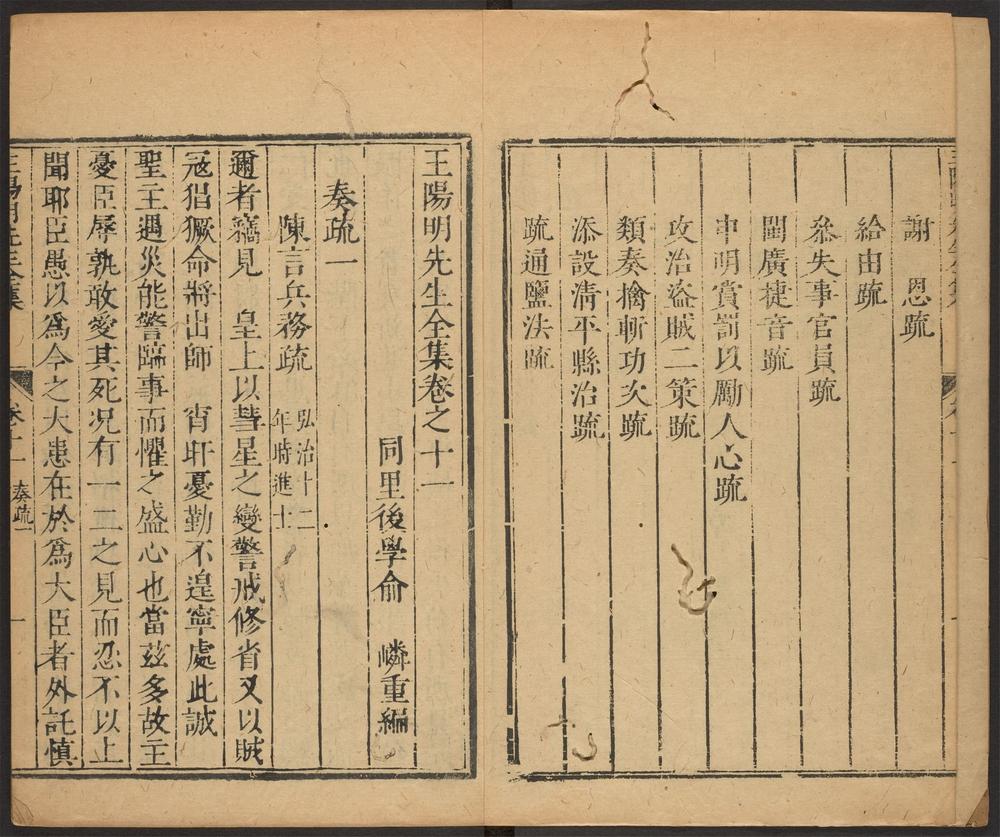 謝　恩疏
給由疏
叅失事官員疏
閩廣捷音疏
申明賞罰以勵人心疏
攻治盜賊二策疏
類奏擒斬功次疏
添設清平縣治疏
疏通鹽法疏
王陽明先生全集卷之十一
同里後學俞　嶙重編
奏疏一
陳言兵務疏　弘治十二年時進士
邇者竊見　皇上以彗星之變警戒修省又以賊
冦猖獗命將出師　宵旰憂勤不遑寧處此誠
聖主遇災能警臨事而懼之盛心也當茲多故主
憂臣辱孰敢愛其死况有一二之見而忍不以上
聞耶臣愚以為今之大患在於為大臣者外託慎
王陽明先生全集　卷十一　奏疏一　一